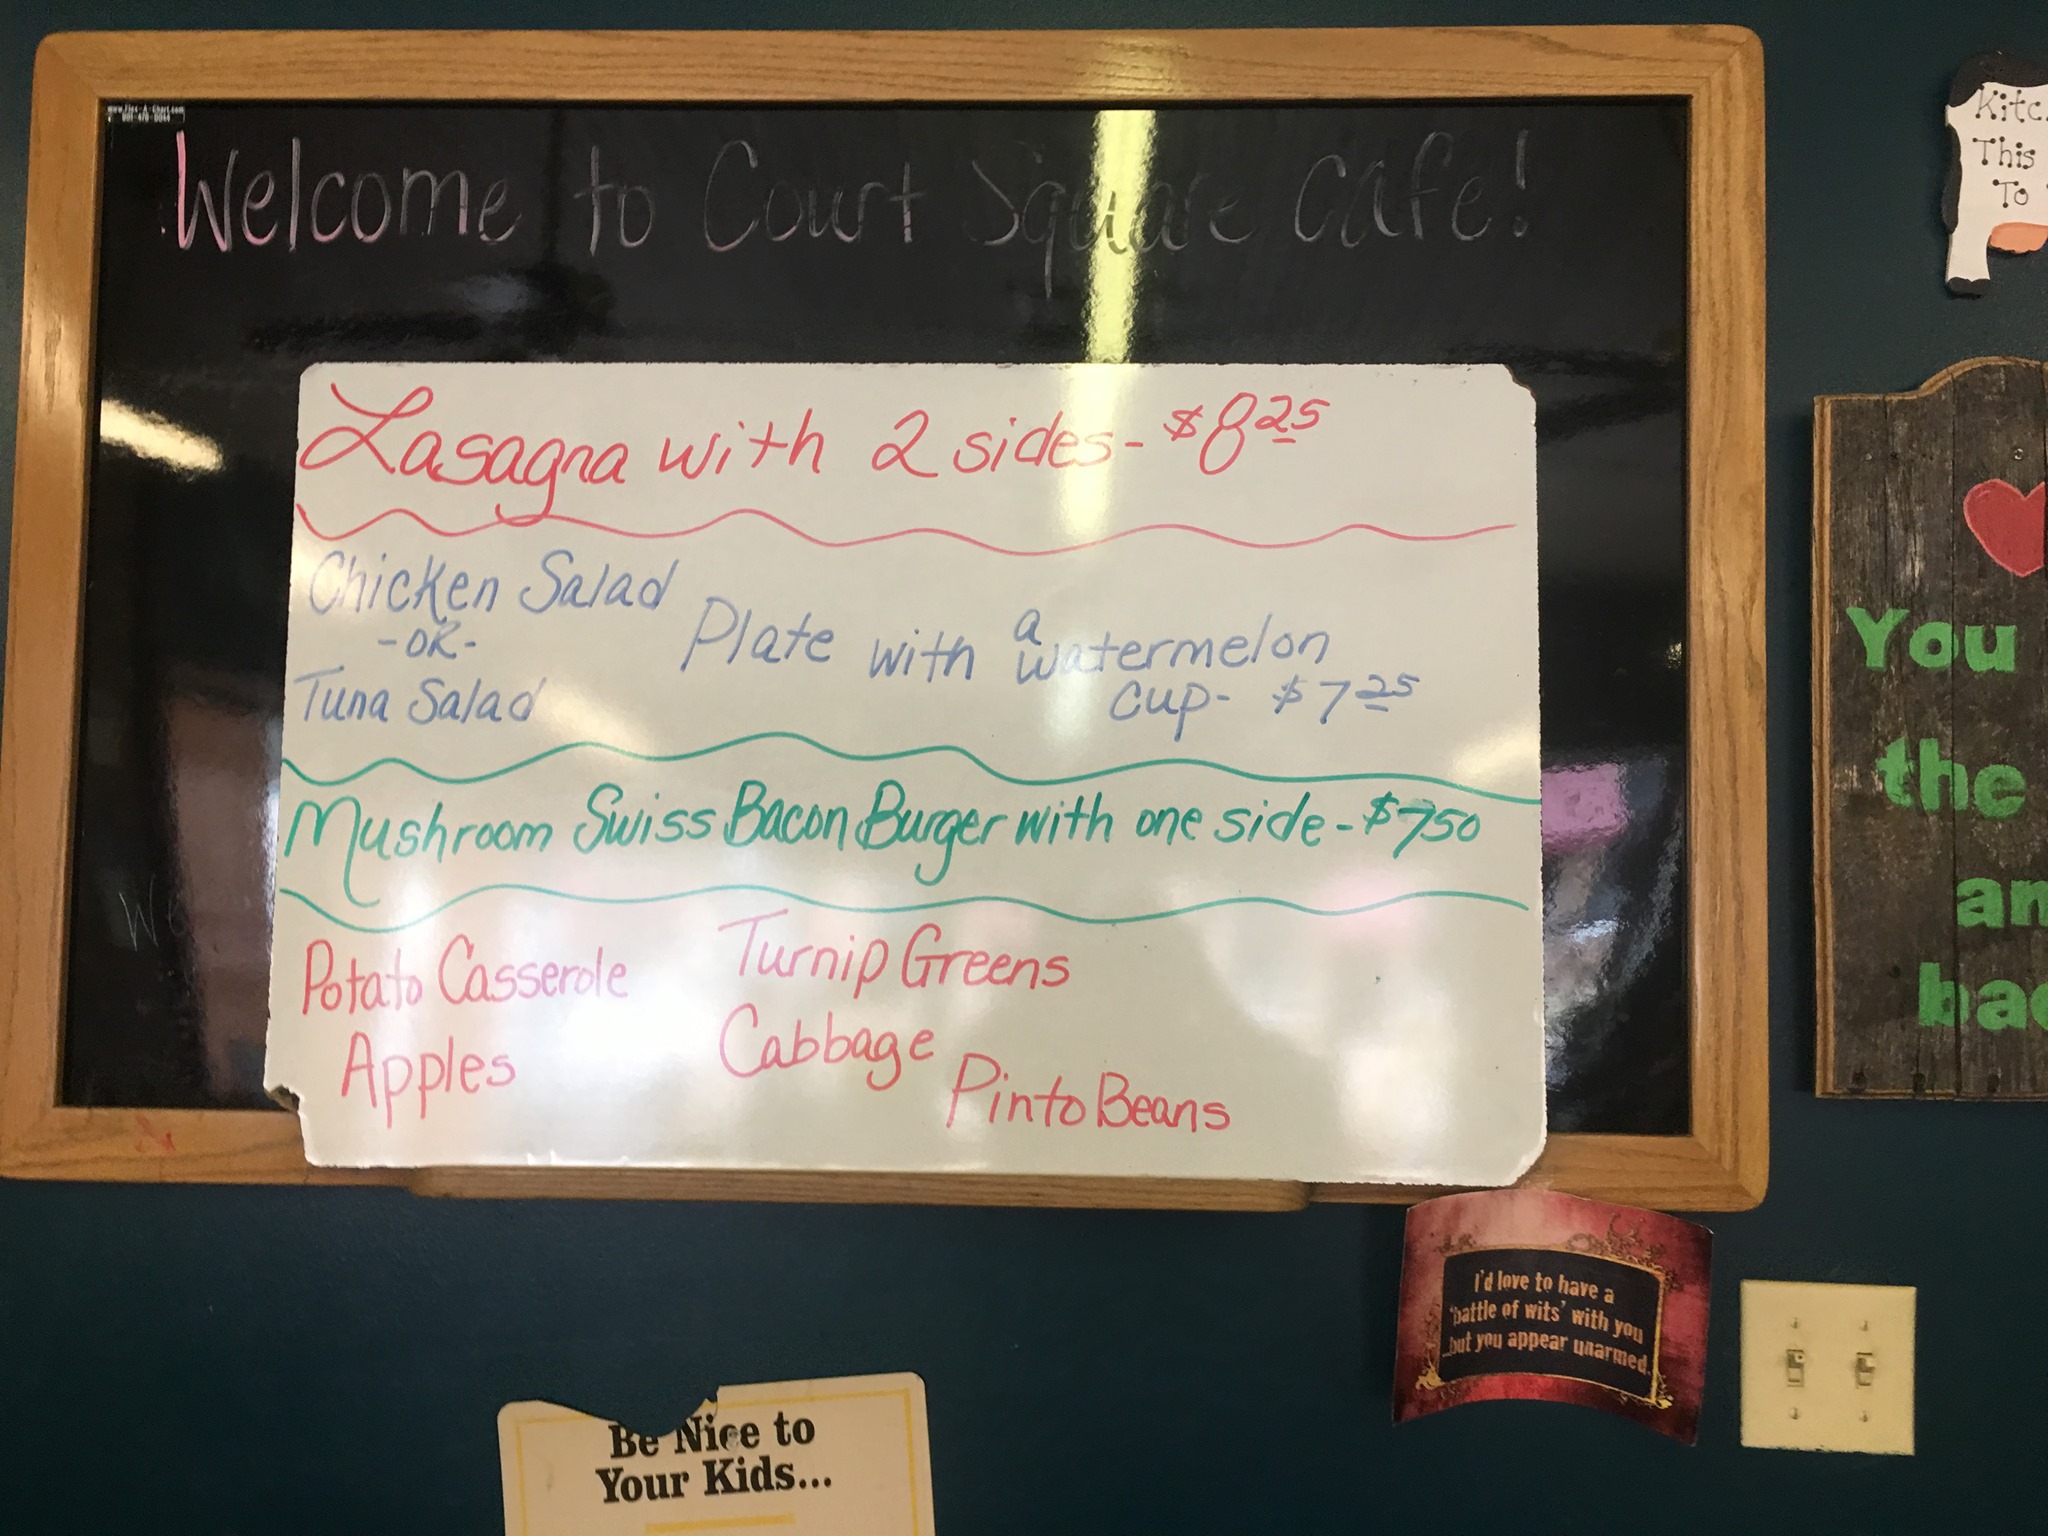 www.Flex-A-Chart.com
Welcome to Court Square Cafe!
Lasagna with 2 sides- $8 25
Chicken Salad
-OR-
Tuna Salad
Plate with a watermelon
cup- $7 25
Mushroom Swiss Bacon Burger with one side - $7 50
Potato Casserole
Turnip Greens
Apples
Cabbage
Pinto Beans
We
This
To
You
the
an
bac
I'd love to have a
'battle of wits' with you
...but you appear unarmed.
Be Nice to
Your Kids...